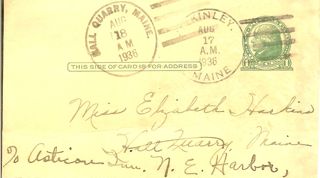 HALL QUARRY, MAINE.
AUG
18
A M
1936
McKINLEY,
AUG
17
A.M.
1936
MAINE
THIS SIDE OF CARD IS FOR ADDRESS
Miss Elizabeth Harkins
Hall Quarry, Maine
To Asticou Inn, N. E. Harbor,